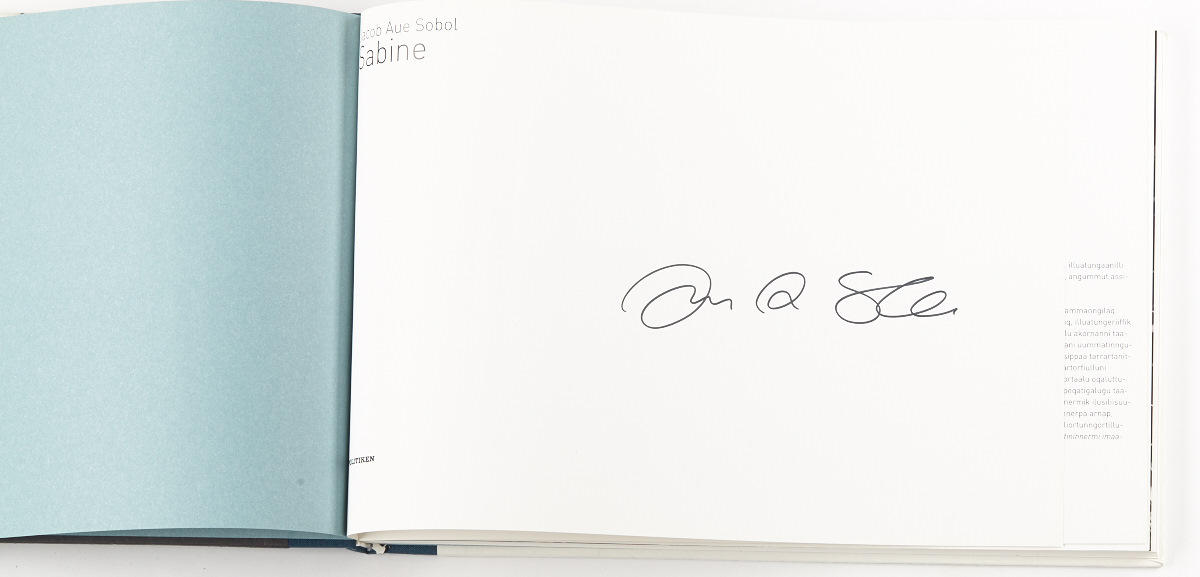 acob Aue Sobol
Sabine
illuatungaanilli
, angummut assi-
ammaangilaq
iq, illuatungeriiffik
lu akornanni taa-
ani uummatinngu-
sippaa tarrartanit-
artorfiulluni
ortaalu oqaluttu-
peqatigalugu taa-
nermik ilusilisuu-
nerpa arnap,
liortunngortillu-
tininnermi imaa-
LITIKEN